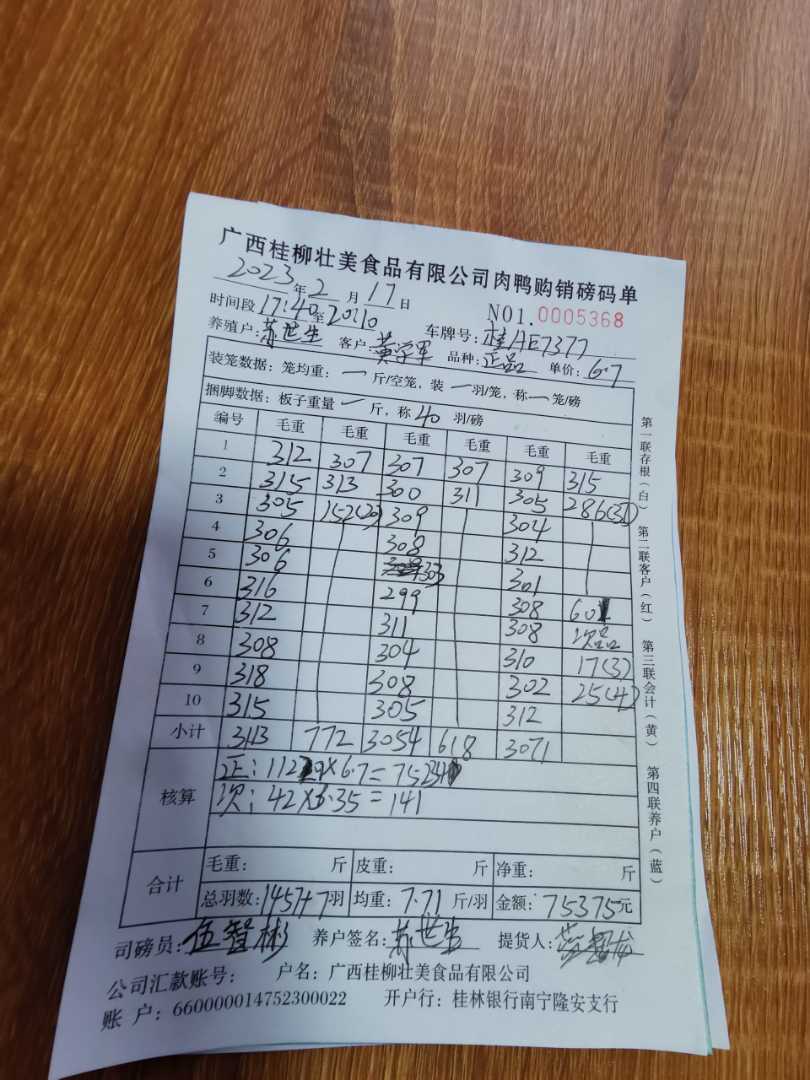 广西桂柳壮美食品有限公司肉鸭购销磅码单
2023年2月17日 NO1.0005368
时间段17:40至20:10 车牌号:桂AE7377
养殖户:苏世生 客户:黄学军 品种:正品 单价:6.7
装笼数据:笼均重:一斤/空笼,装一羽/笼,称一笼/磅
捆脚数据:板子重量一斤,称40羽/磅
编号 毛重 毛重 毛重 毛重 毛重 毛重
1 312 307 307 307 309 315
2 315 313 300 311 305 286(37)
3 305 152(20) 309 304
4 306 308 312
5 306 303 301
6 316 299 308 601
7 312 311 308 次品
8 308 304 310 17(3)
9 318 308 302 25(4)
10 315 305 312
小计 3113 772 3054 618 3071
核算 正:11229×6.7=75234
次:42×3.35=141
合计 毛重: 斤 皮重: 斤 净重: 斤
总羽数:1457+7羽 均重:7.71斤/羽 金额:75375元
司磅员:伍智彬 养户签名:苏世生 提货人:
公司汇款账号: 户名:广西桂柳壮美食品有限公司
账 户:660000014752300022 开户行:桂林银行南宁隆安支行
第一联存根(白) 第二联客户(红) 第三联会计(黄) 第四联养户(蓝)